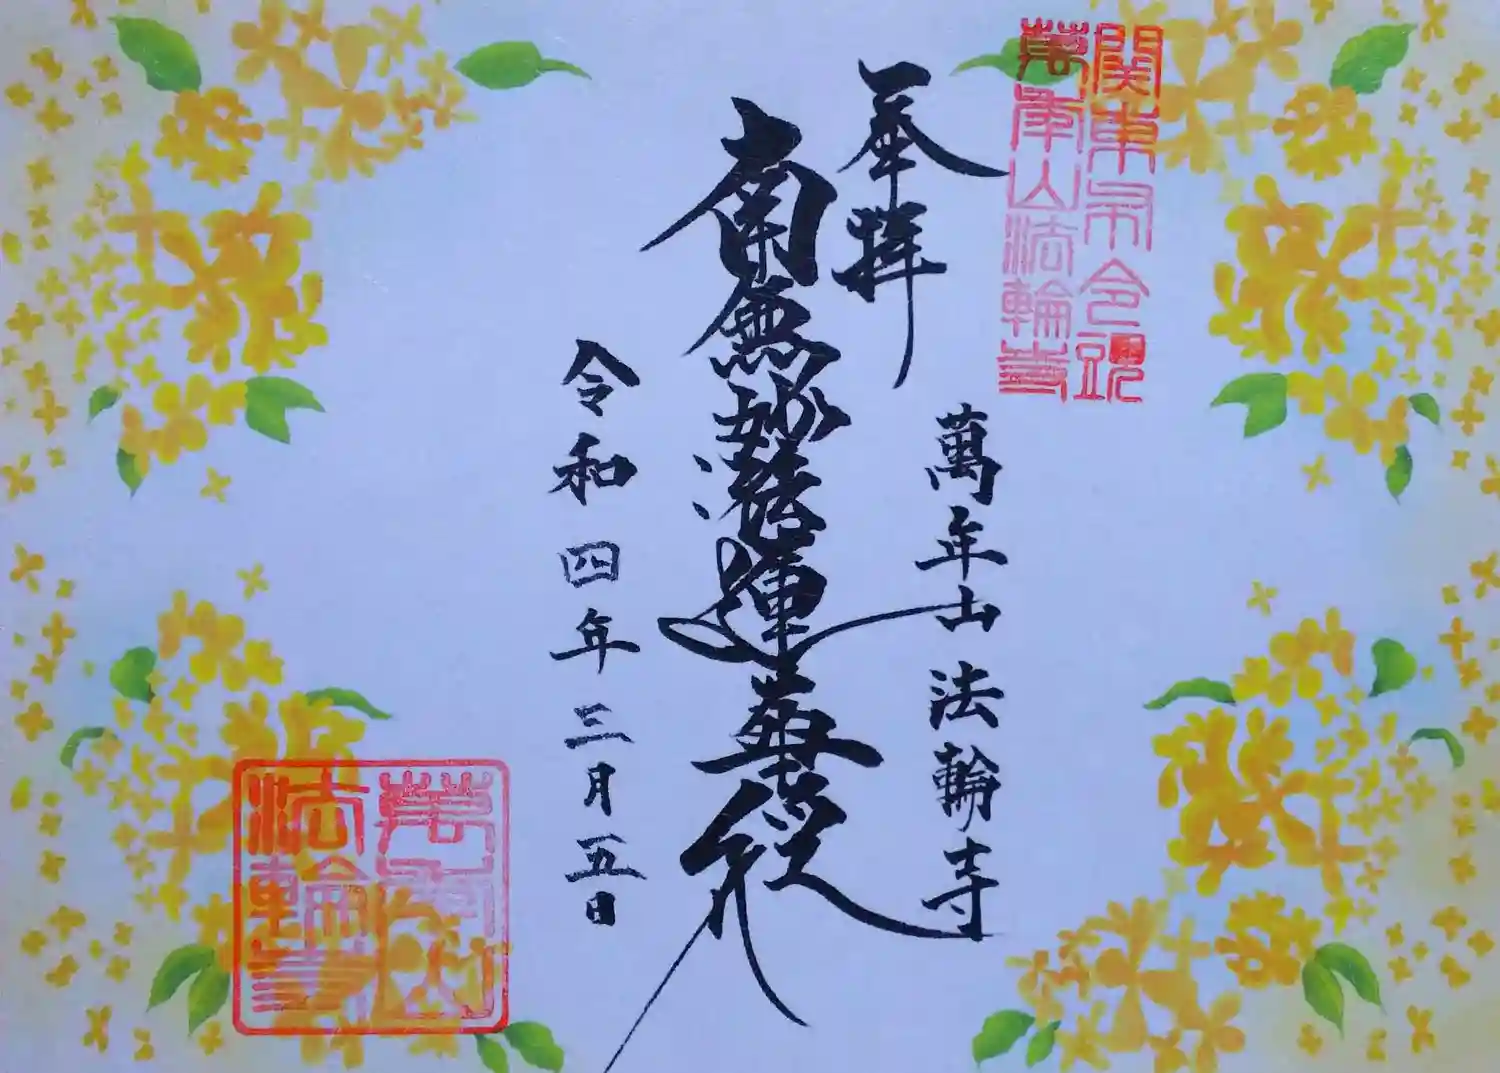 関東布令咒
萬年山法輪寺
奉拝
萬年山法輪寺
南無妙法蓮華経
令和四年三月五日
萬年山
法輪寺